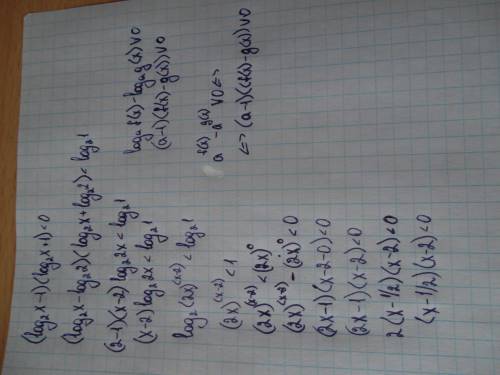 (log₂x-1)(log₂x+1)<0
(log₂x-log₂2)(log₂x+log₂2)<log₂1
(2-1)(x-2)log₂2x<log₂1
(x-2)log₂2x<log₂1
log₂(2x)^(x-2)<log₂1
(2x)^(x-2)<1
(2x)^(x-2)<(2x)^0
(2x)^(x-2)-(2x)^0<0
(2x-1)(x-2-0)<0
(2x-1)(x-2)<0
2(x-1/2)(x-2)<0
(x-1/2)(x-2)<0
logₐf(x)-logₐg(x)∨0
(a-1)(f(x)-g(x))∨0
a^f(x)-a^g(x)∨0<=>
<=>(a-1)(f(x)-g(x))∨0